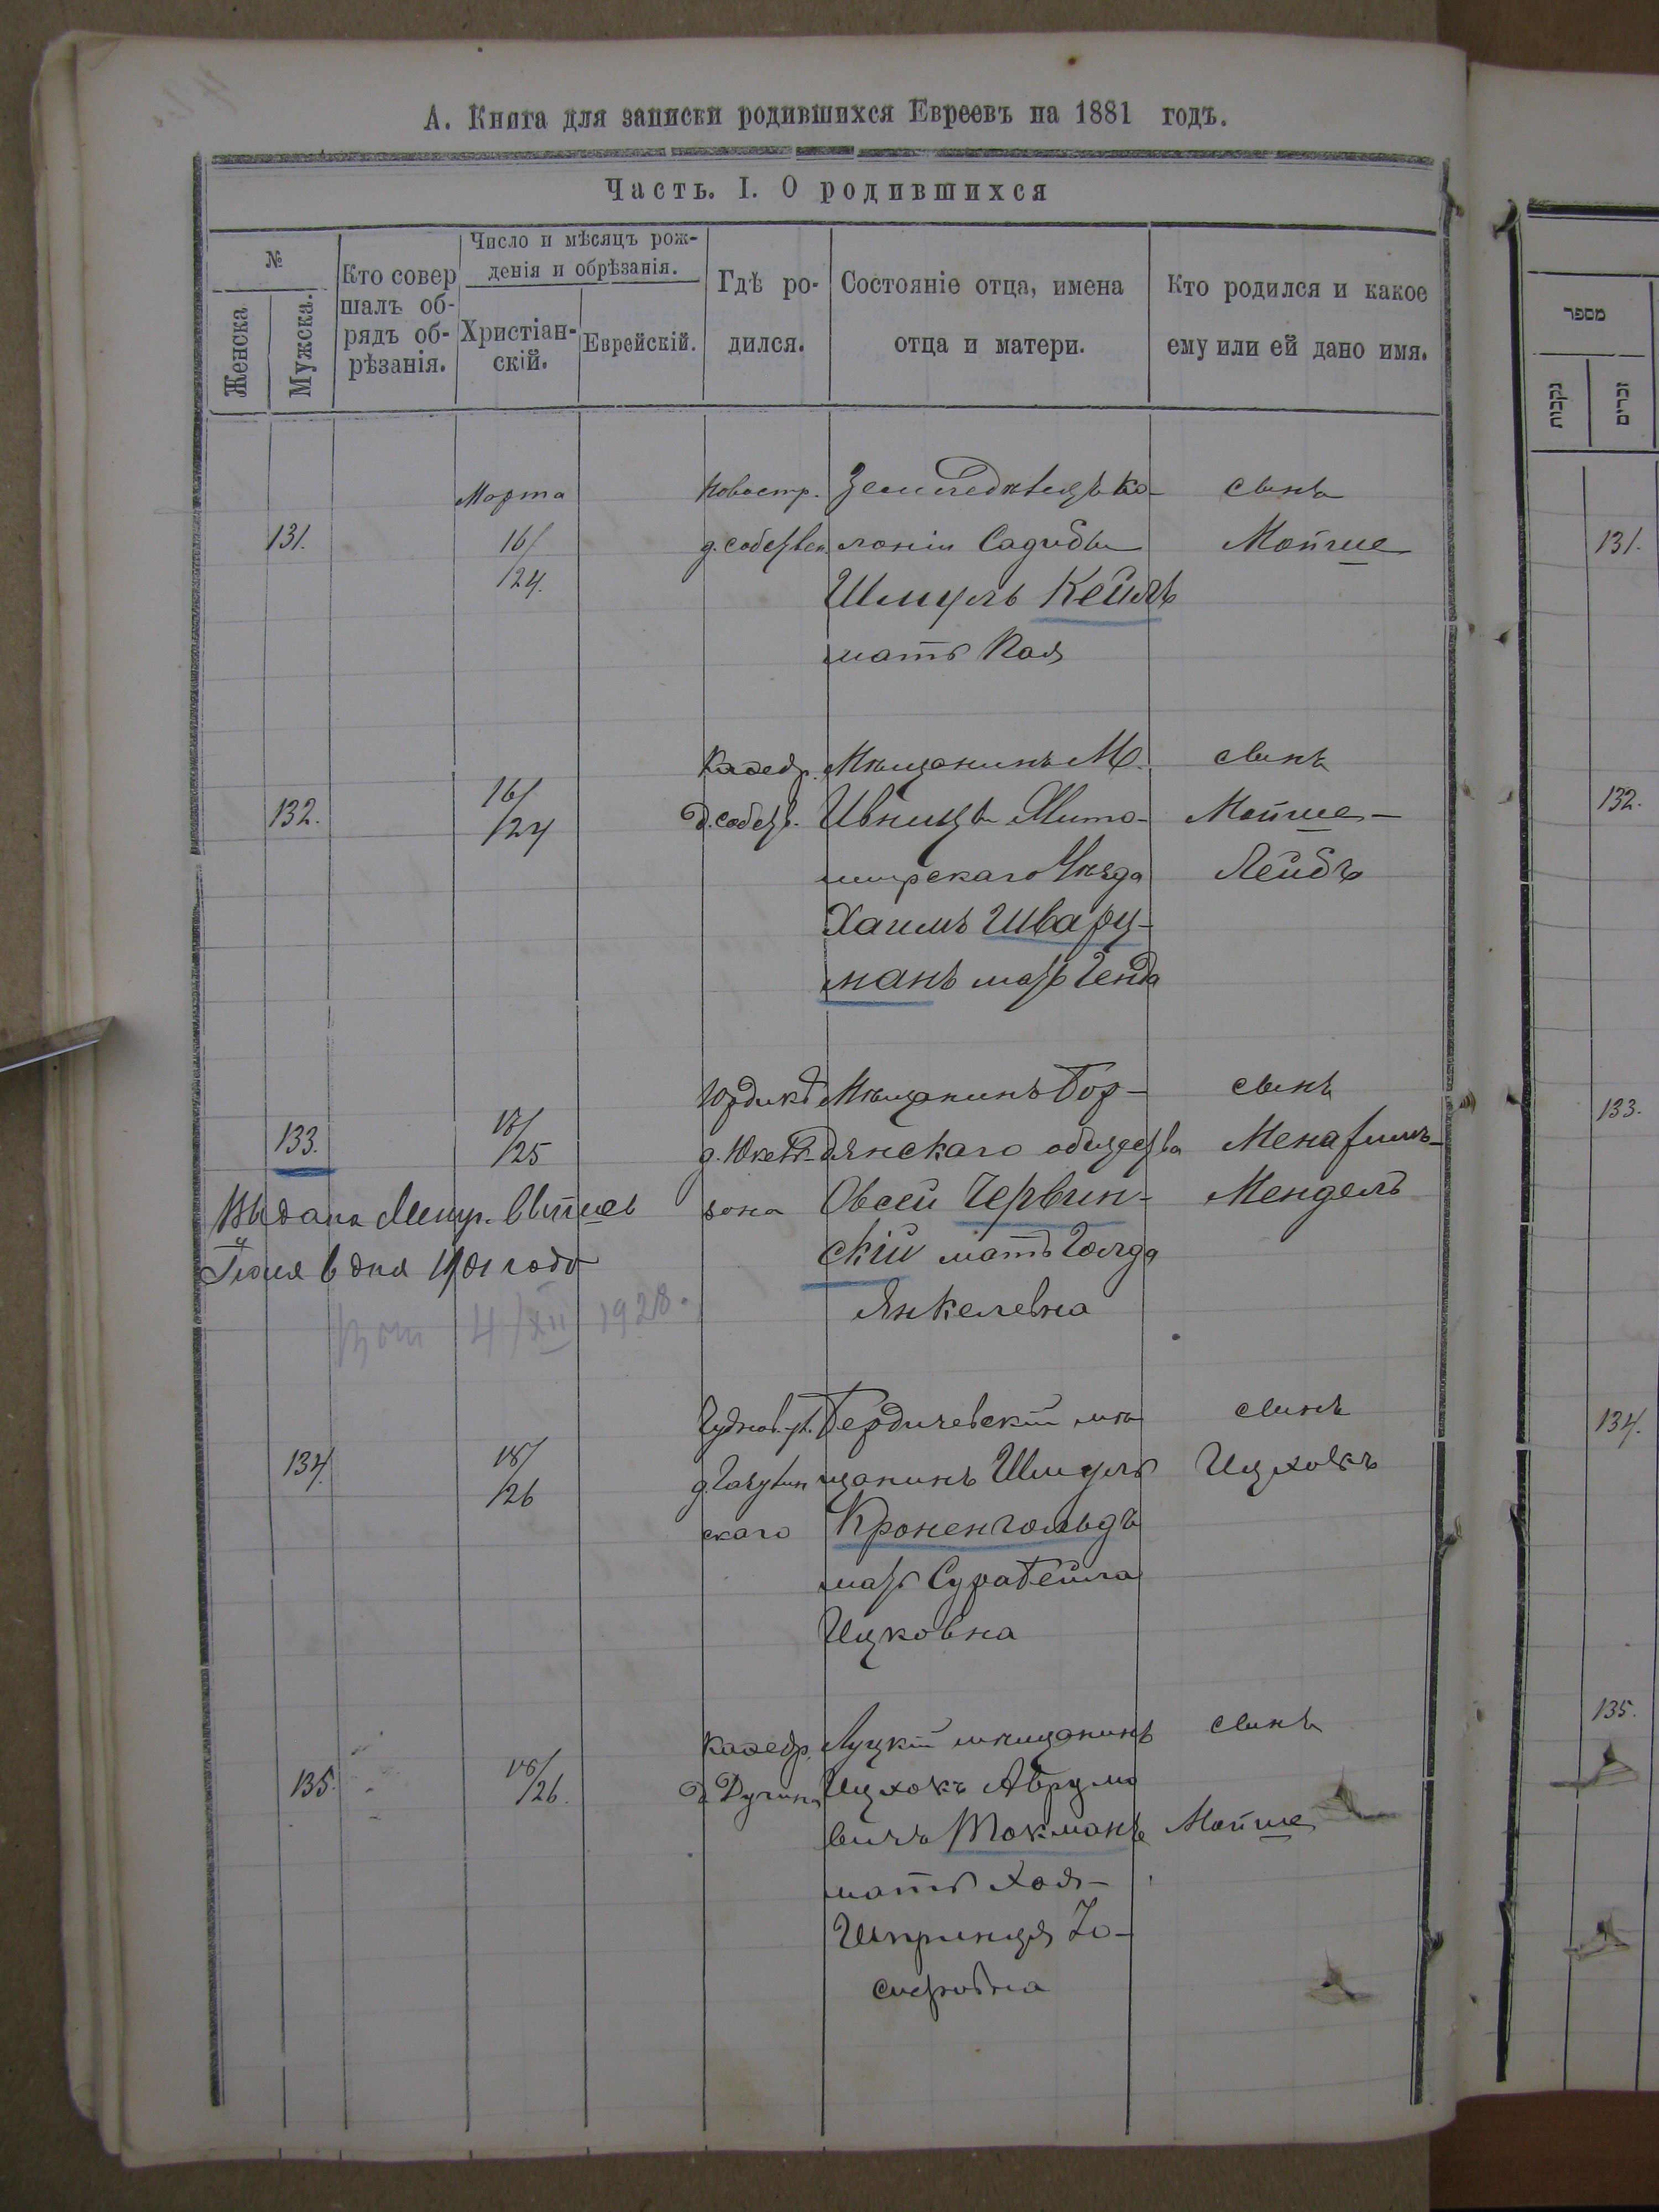 А. Книга для записки родившихся Евреевъ на 1881 годъ.
Часть. I. О родившихся
№
Женска
Мужска.
Кто совер
шалъ об-
рядъ об-
рѣзанія.
Число и мѣсяцъ рож-
денія и обрѣзанія.
Христіан-
скій.
Еврейскій.
Гдѣ ро-
дился.
Состояніе отца, имена
отца и матери.
Кто родился и какое
ему или ей дано имя.
131.
Марта
16/
/24.
Новостр.
д. собствен
Земледѣлецъ ко-
лоніи Садубы
Шмуль Кейлъ
мать Пая
сынъ
Мойше
132.
16/
/24
Кафедр.
д. собств.
Мѣщанинъ М.
Ивницы Жито-
мирскаго Уѣзда
Хаимъ Шварц-
манъ мать Генда
сынъ
Мойше-
Лейбъ
133.
18/
/25
д.
зона
Мѣщанинъ Бор-
дянскаго общества
Овсей Червин-
скій мать Голда
Янкелевна
сынъ
Менахимъ-
Мендель
Выдана
Іюля 6 дня 1901 года
4/XII 1928.
134.
18/
/26
Чуднов. ул.
скаго
Бердичевскій мѣ
щанинъ Шмуль
Кроненгольдъ
мать Сура Бейла
Ицковна
сынъ
Ицхокъ
135.
18/
/26.
Кафедр.
Луцкій мѣщанинъ
Ицхокъ Аврумо
вичъ Токманъ
мать Хая-
Шпринця Іо-
сифовна
сынъ
Мойше
מספר
נקבות
זכרים
131.
132.
133.
134.
135.